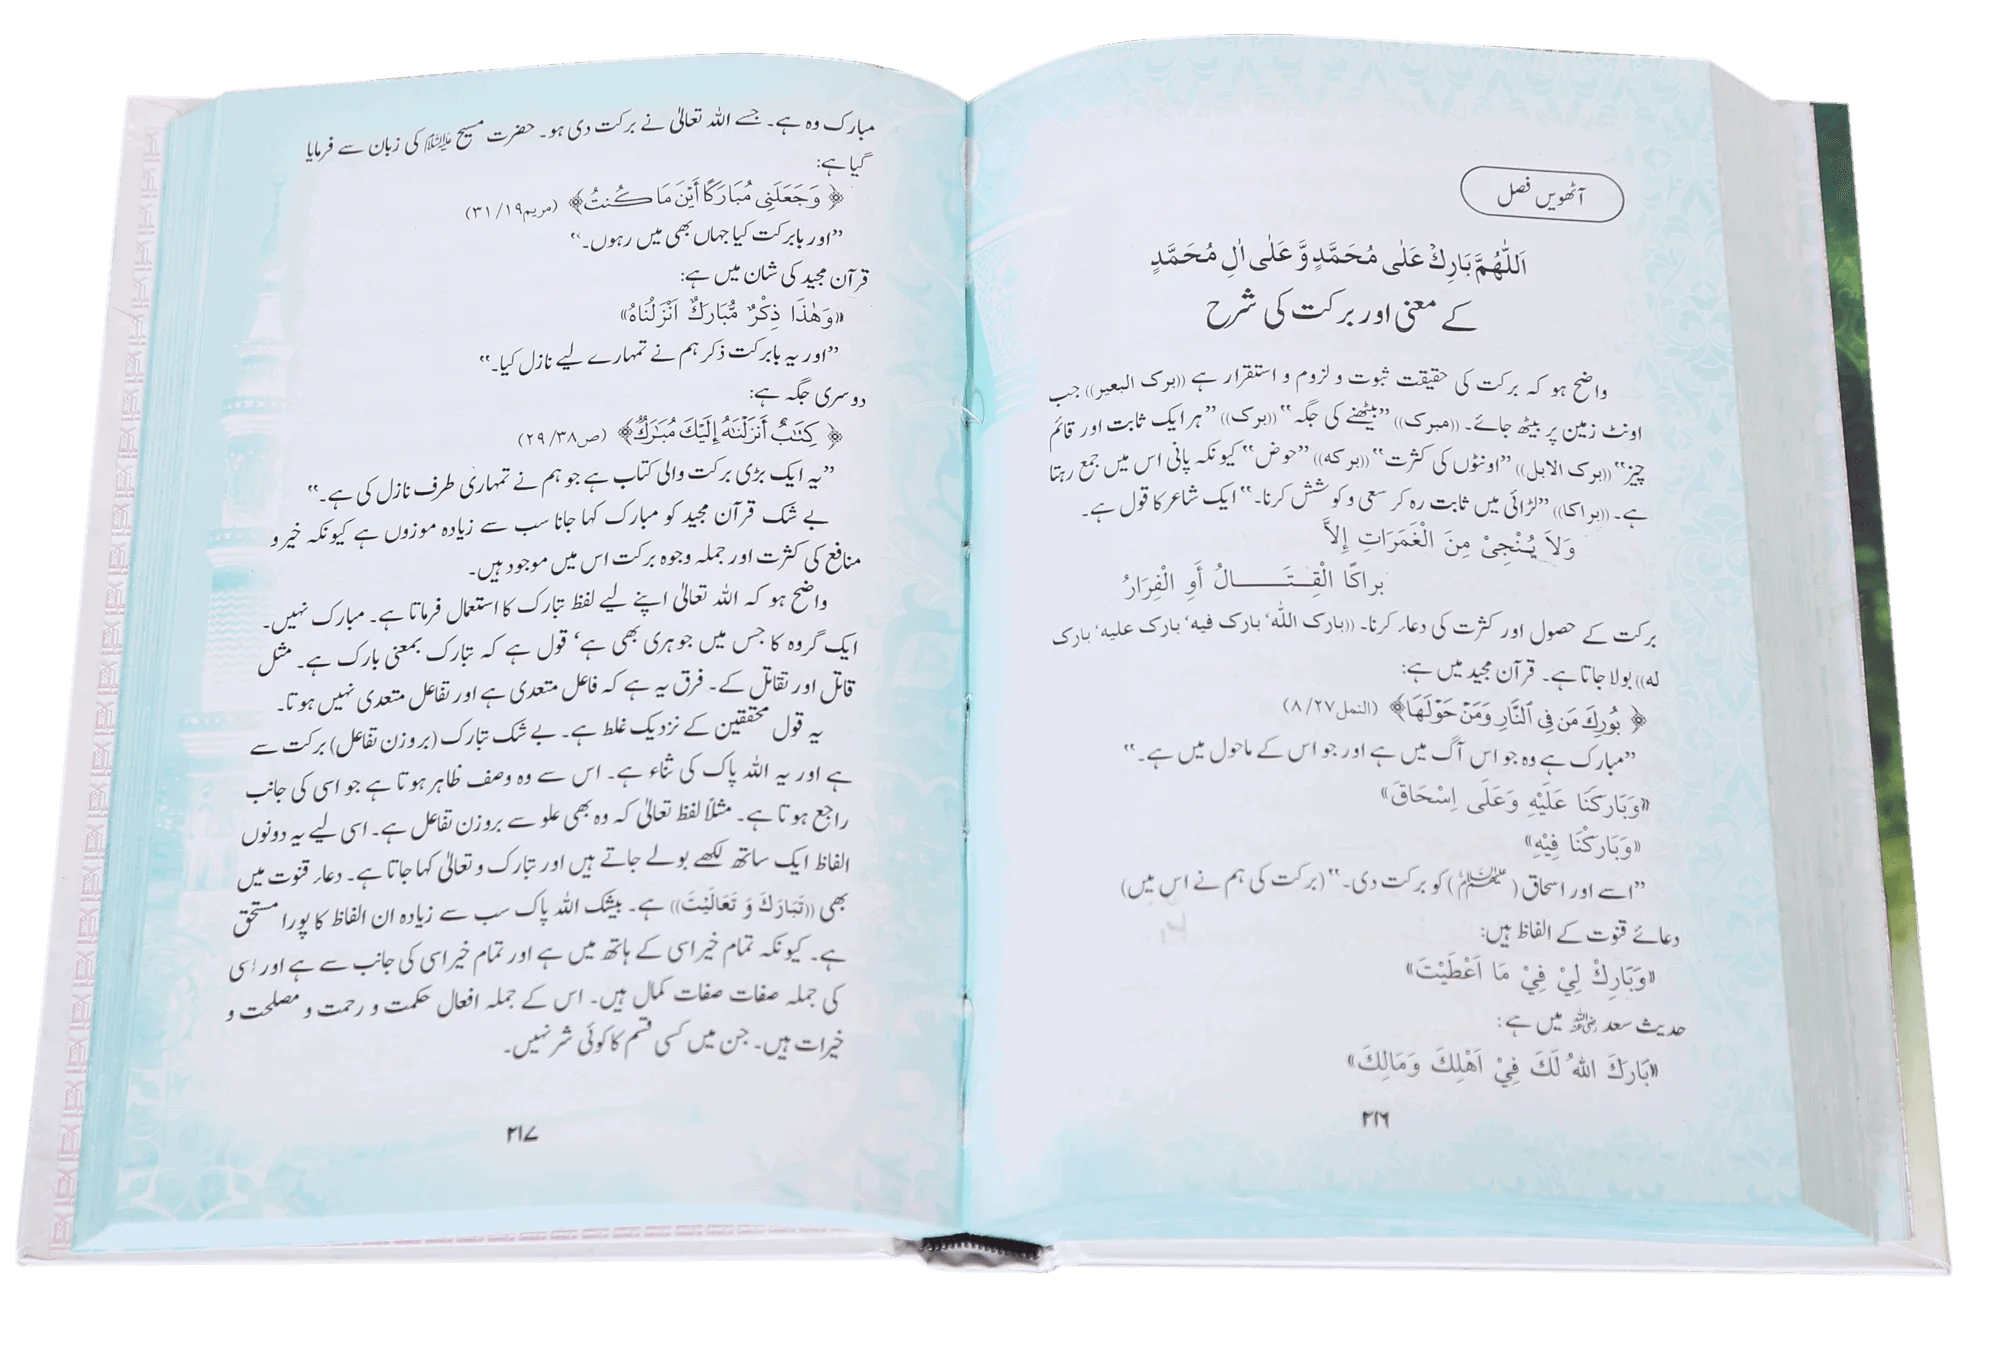 آٹھویں فصل
اَللّٰهُمَّ بَارِكْ عَلٰى مُحَمَّدٍ وَّ عَلٰى اٰلِ مُحَمَّدٍ
کے معنی اور برکت کی شرح
واضح ہو کہ برکت کی حقیقت ثبوت و لزوم و استقرار ہے ((برک البعیر)) جب
اونٹ زمین پر بیٹھ جائے۔ ((مبرک)) ”بیٹھنے کی جگہ“ ((برک)) ”ہر ایک ثابت اور قائم
چیز“ ((برک الابل)) ”اونٹوں کی کثرت“ ((برکه)) ”حوض“ کیونکہ پانی اس میں جمع رہتا
ہے۔ ((براکا)) ”لڑائی میں ثابت رہ کر سعی و کوشش کرنا۔“ ایک شاعر کا قول ہے۔
وَلاَ يُنْجِىْ مِنَ الْغَمَرَاتِ اِلاَّ
براكًا الْقِتَـــــالُ أَوِ الْفِرَارُ
برکت کے حصول اور کثرت کی دعاء کرنا۔ ((بارک اللّٰه‘ بارک فیه‘ بارک علیه‘ بارک
له)) بولا جاتا ہے۔ قرآن مجید میں ہے:
﴿بُورِكَ مَن فِي ٱلنَّارِ وَمَنۡ حَوۡلَهَا﴾ (النمل۲۷/ ۸)
”مبارک ہے وہ جو اس آگ میں ہے اور جو اس کے ماحول میں ہے۔“
«وَبَارَكْنَا عَلَيْهِ وَعَلَى اِسْحَاقَ»
«وَبَارَكْنَا فِيْهِ»
”اسے اور اسحاق (علیہما السلام) کو برکت دی۔“ (برکت کی ہم نے اس میں)
دعائے قنوت کے الفاظ ہیں:
«وَبَارِكْ لِيْ فِيْ مَا اَعْطَيْتَ»
حدیث سعد رضی اللہ عنہ میں ہے:
«بَارَكَ اللّٰهُ لَكَ فِيْ اَهْلِكَ وَمَالِكَ»
۲۱۶
مبارک وہ ہے۔ جسے اللہ تعالیٰ نے برکت دی ہو۔ حضرت مسیح علیہ السلام کی زبان سے فرمایا
گیا ہے:
﴿وَجَعَلَنِي مُبَارَكًا أَيۡنَ مَا كُنتُ﴾ (مریم۱۹/ ۳۱)
”اور بابرکت کیا جہاں بھی میں رہوں۔“
قرآن مجید کی شان میں ہے:
«وَهٰذَا ذِكْرٌ مُّبَارَكٌ اَنْزَلْنَاهُ»
”اور یہ بابرکت ذکر ہم نے تمہارے لیے نازل کیا۔“
دوسری جگہ ہے:
﴿كِتَٰبٌ أَنزَلۡنَٰهُ إِلَيۡكَ مُبَٰرَكٌ﴾ (ص۳۸/ ۲۹)
”یہ ایک بڑی برکت والی کتاب ہے جو ہم نے تمہاری طرف نازل کی ہے۔“
بے شک قرآن مجید کو مبارک کہا جانا سب سے زیادہ موزوں ہے کیونکہ خیر و
منافع کی کثرت اور جملہ وجوہ برکت اس میں موجود ہیں۔
واضح ہو کہ اللہ تعالیٰ اپنے لیے لفظ تبارک کا استعمال فرماتا ہے۔ مبارک نہیں۔
ایک گروہ کا جس میں جوہری بھی ہے‘ قول ہے کہ تبارک بمعنی بارک ہے۔ مثل
قاتل اور تقاتل کے۔ فرق یہ ہے کہ فاعل متعدی ہے اور تفاعل متعدی نہیں ہوتا۔
یہ قول محققین کے نزدیک غلط ہے۔ بے شک تبارک (بروزن تفاعل) برکت سے
ہے اور یہ اللہ پاک کی ثناء ہے۔ اس سے وہ وصف ظاہر ہوتا ہے جو اسی کی جانب
راجع ہوتا ہے۔ مثلاً لفظ تعالیٰ کہ وہ بھی علو سے بروزن تفاعل ہے۔ اسی لیے یہ دونوں
الفاظ ایک ساتھ لکھے بولے جاتے ہیں اور تبارک و تعالیٰ کہا جاتا ہے۔ دعاء قنوت میں
بھی ((تَبَارَكَ وَ تَعَالَيْتَ)) ہے۔ بیشک اللہ پاک سب سے زیادہ ان الفاظ کا پورا مستحق
ہے۔ کیونکہ تمام خیر اسی کے ہاتھ میں ہے اور تمام خیر اسی کی جانب سے ہے اور اسی
کی جملہ صفات صفات کمال ہیں۔ اس کے جملہ افعال حکمت و رحمت و مصلحت و
خیرات ہیں۔ جن میں کسی قسم کا کوئی شر نہیں۔
۲۱۷